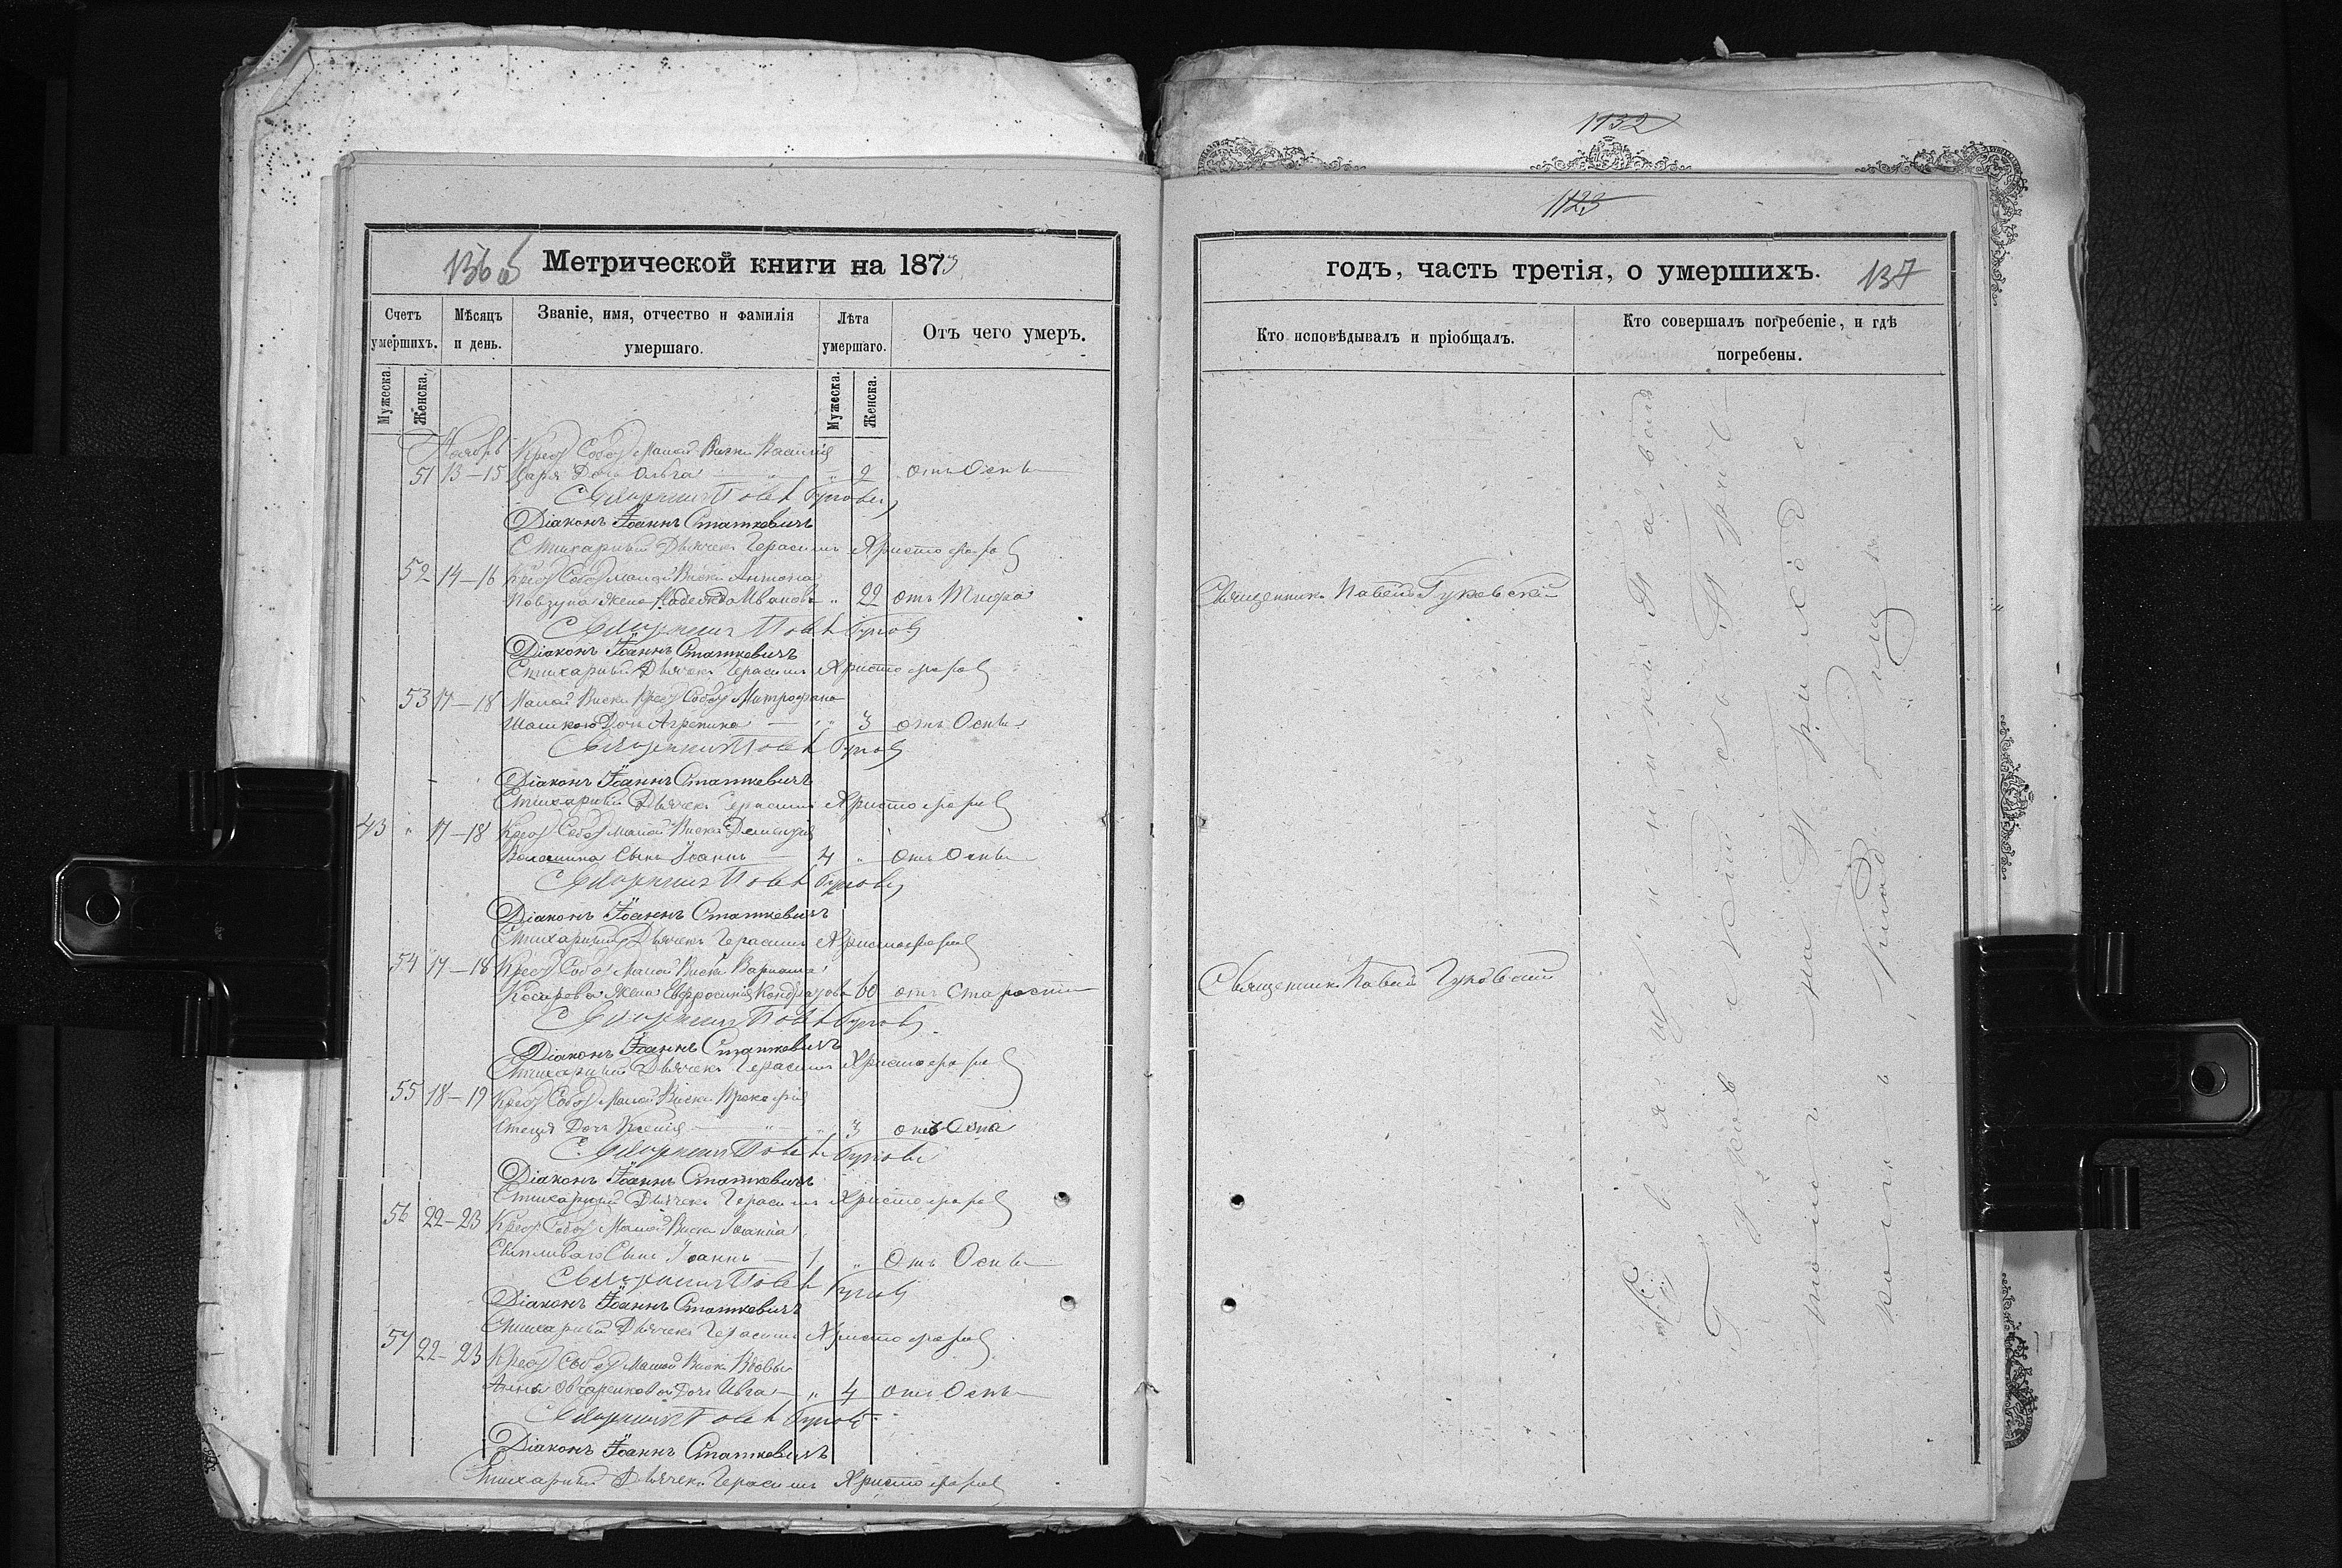 1132
1123
136 об
Метрической книги на 1873
Счетъ умершихъ.
Мѣсяцъ и день.
Званіе, имя, отчество и фамилія умершаго.
Лѣта умершаго.
Отъ чего умеръ.
Мужеска.
Женска.
Мужеска.
Женска.
Ноябрь Крес Собс Малой Виски Василія
51 13-15 Царя Дочь Ольга " 2 отъ Оспы
Священникъ Павелъ
Діаконъ Іоаннъ Статкевичъ
Стихарный Дьячекъ Герасимъ Христофоров
52 14-16 Крес Собс Малой Виски Антона
Повзуна Жена Надежда Иванова " 22 отъ Тифа
Священникъ Павелъ
Діаконъ Іоаннъ Статкевичъ
Стихарный Дьячекъ Герасимъ Христофоров
53 17-18 Малой Виски Крес Собс Митрофана
Дочь Агрепина " 3 отъ Оспы
Священникъ Павелъ
Діаконъ Іоаннъ Статкевичъ
Стихарный Дьячекъ Герасимъ Христофоров
43 " 17-18 Крес Собс Малой Виски Дементія
Сынъ Іоаннъ 4 " отъ Оспы
Священникъ Павелъ
Діаконъ Іоаннъ Статкевичъ
Стихарный Дьячекъ Герасимъ Христофоров
54 17-18 Крес Собс Малой Виски
Косарева Жена Евфросинія Кондратова 60 отъ Старости
Священникъ Павелъ
Діаконъ Іоаннъ Статкевичъ
Стихарный Дьячекъ Герасимъ Христофоров
55 18-19 Крес Собс Малой Виски Прокофія
Дочь Ксенія " 3 отъ Оспы
Священникъ Павелъ
Діаконъ Іоаннъ Статкевичъ
Стихарный Дьячекъ Герасимъ Христофоров
56 22-23 Крес Собс Малой Виски Іоанна
Сынъ Іоаннъ 1 " Отъ Оспы
Священникъ Павелъ
Діаконъ Іоаннъ Статкевичъ
Стихарный Дьячекъ Герасимъ Христофоров
57 22-23 Крес Собс Малой Виски Вдовы
Анны Овчаренковой Дочь " 4 отъ Оспы
Священникъ Павелъ
Діаконъ Іоаннъ Статкевичъ
Стихарный Дьячекъ Герасимъ Христофоров
годъ, часть третія, о умершихъ.
137
Кто исповѣдывалъ и пріобщалъ.
Кто совершалъ погребеніе, и гдѣ погребены.
Священникъ Павелъ Гуковскій
Священникъ Павелъ Гуковскій
Священникъ Павелъ
Гуковскій съ Прич-
томъ на Приход с-
комъ Кладбищѣ